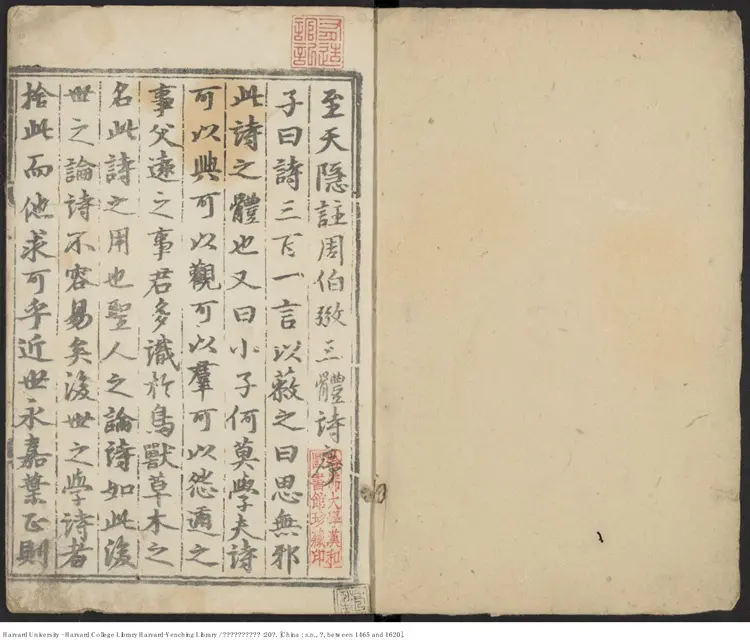 至天隱註周伯三體詩序
子曰詩三百一言以蔽之曰思無邪
此詩之體也又曰小子何莫學夫詩
可以興可以觀可以羣可以怨邇之
事父遠之事君多識於鳥獸草木之
名此詩之用也聖人之論詩如此後
世之論詩不容易矣後世之學詩者
捨此而他求可乎近世永嘉葉正則
哈佛大學漢和
圖書館珍藏印
Harvard University - Harvard College Library Harvard-Yenching Library / ?????????? :20?. [China : s.n., ?, between 1465 and 1620].